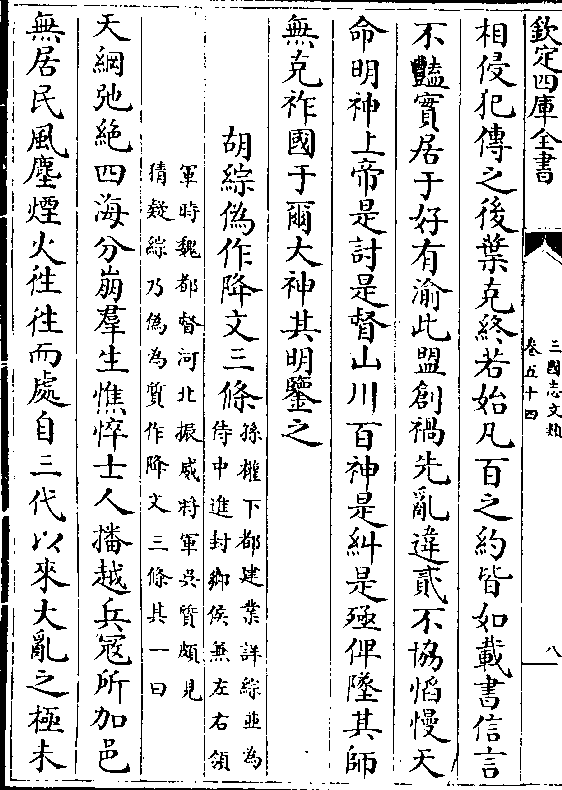 欽定四庫全書
三國志文類
卷五十四
八
相侵犯傳之後葉克終若始凡百之約皆如載書信言
不豔實居于好有渝此盟創禍先亂違貳不協慆慢天
命明神上帝是討是督山川百神是糾是殛俾墜其師
無克祚國于爾大神其明鑒之
胡綜偽作降文三條
孫權下都建業詳綜並為
侍中進封鄉侯無左右領
軍時魏都督河北振威將軍吳質頗見
猜疑綜乃偽為質作降文三條其一曰
天綱弛絶四海分崩羣生憔悴士人播越兵寇所加邑
無居民風塵煙火往往而處自三代以來大亂之極未